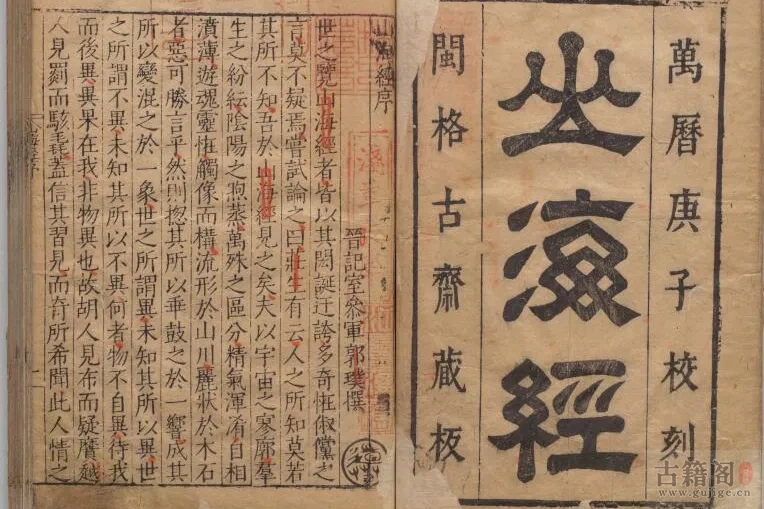 萬曆庚子校刻
山海經
閩格古齋蔵板
山海經序
晉記室參軍郭璞撰
世之覽山海經者皆以其閎誕迂誇多奇怪俶儻之
言莫不疑焉嘗試論之曰莊生有云人之所知莫若
其所不知吾於山海經見之矣夫以宇宙之寥廓羣
生之紛紜陰陽之煦蒸萬殊之區分精氣渾淆自相
濆薄遊魂靈怪觸像而構流形於山川麗狀於木石
者惡可勝言乎然則揔其所以乖鼓之於一響成其
所以變混之於一象世之所謂異未知其所以異世
之所謂不異未知其所以不異何者物不自異待我
而後異異果在我非物異也故胡人見布而疑黂越
人見罽而駭毳蓋信其習見而奇所希聞此人情之
古籍阁
www.gujige.cn